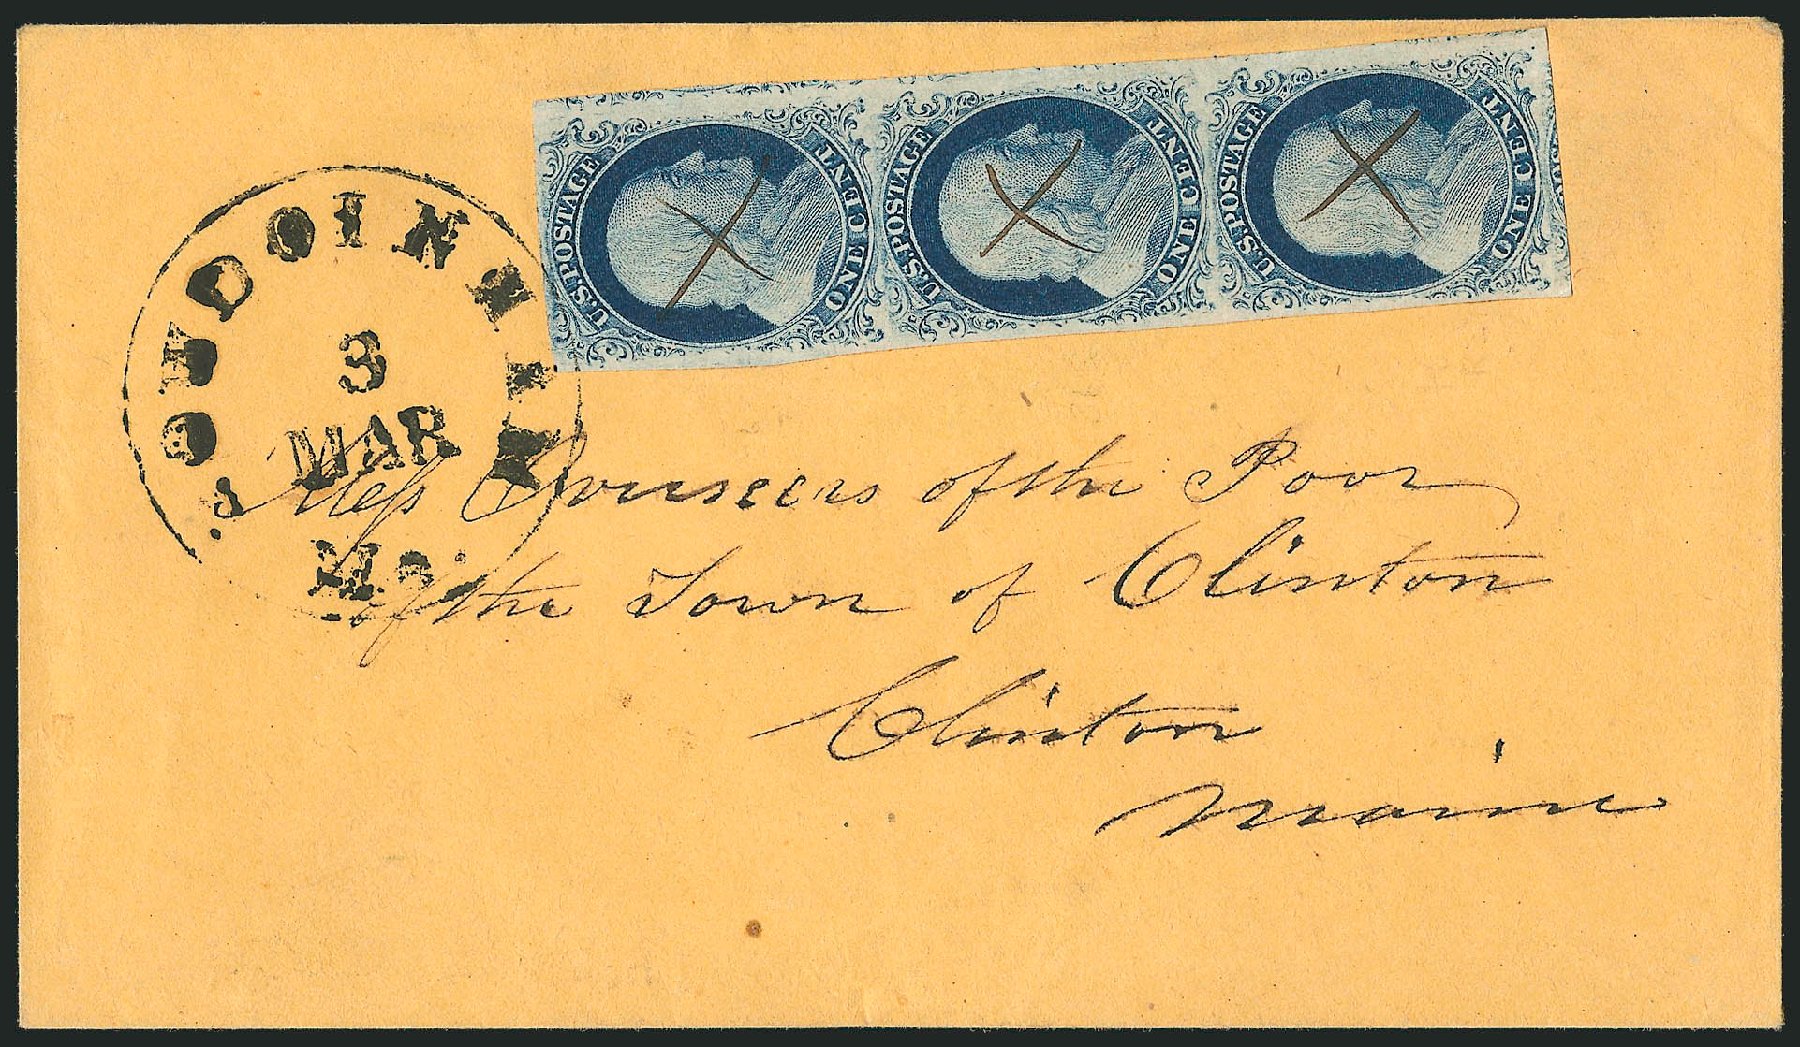 BOWDOINHAM
3
MAR
Me.
U.S. POSTAGE
ONE CENT
U.S. POSTAGE
ONE CENT
U.S. POSTAGE
ONE CENT
Mess Overseers of the Poor
of the Town of Clinton
Clinton
Maine